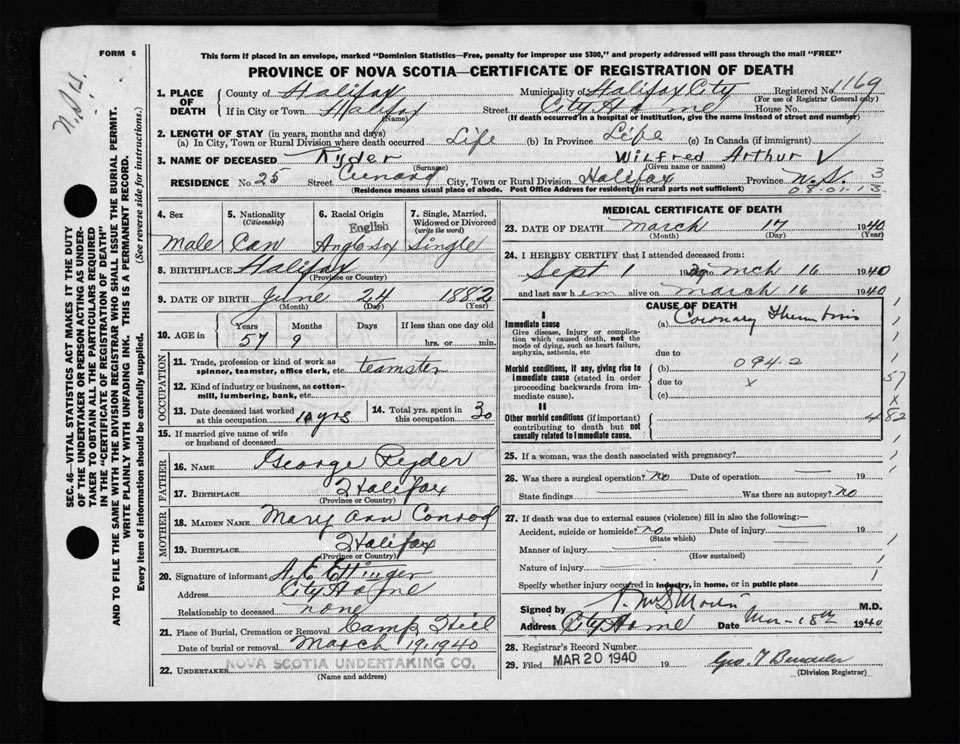 FORM 6
This form if placed in an envelope, marked "Dominion Statistics—Free, penalty for improper use $300," and properly addressed will pass through the mail "FREE"
PROVINCE OF NOVA SCOTIA—CERTIFICATE OF REGISTRATION OF DEATH
N.S.H.
SEC. 46—VITAL STATISTICS ACT MAKES IT THE DUTY
OF THE UNDERTAKER OR PERSON ACTING AS UNDER-
TAKER TO OBTAIN ALL THE PARTICULARS REQUIRED
IN THE "CERTIFICATE OF REGISTRATION OF DEATH"
AND TO FILE THE SAME WITH THE DIVISION REGISTRAR WHO SHALL ISSUE THE BURIAL PERMIT.
WRITE PLAINLY WITH UNFADING INK. THIS IS A PERMANENT RECORD.
Every item of information should be carefully supplied. (See reverse side for instructions.)
1. PLACE OF DEATH County of Halifax Municipality of Halifax City Registered No. 1169
(For use of Registrar General only)
If in City or Town Halifax Street City Home House No.
(Name) (If death occurred in a hospital or institution, give the name instead of street and number)
2. LENGTH OF STAY (in years, months and days)
(a) In City, Town or Rural Division where death occurred Life (b) In Province Life (c) In Canada (if immigrant)
3. NAME OF DECEASED Ryder Wilfred Arthur
(Surname) (Given name or names)
RESIDENCE No. 25 Street Cunard City, Town or Rural Division Halifax Province N.S. 3
(Residence means usual place of abode. Post Office Address for residents in rural parts not sufficient) 08-01-13
4. Sex
Male
5. Nationality
(Citizenship)
Can
6. Racial Origin
English
Anglo Sax
7. Single, Married, Widowed or Divorced
(write the word)
Single
8. BIRTHPLACE Halifax
(Province or Country)
9. DATE OF BIRTH June 24 1882
(Month) (Day) (Year)
10. AGE in Years Months Days If less than one day old
57 9 hrs. or min.
OCCUPATION
11. Trade, profession or kind of work as
spinner, teamster, office clerk, etc. teamster
12. Kind of industry or business, as cotton-
mill, lumbering, bank, etc.
13. Date deceased last worked at this occupation 10 yrs 14. Total yrs. spent in this occupation 30
15. If married give name of wife
or husband of deceased
FATHER
16. NAME George Ryder
17. BIRTHPLACE Halifax
(Province or Country)
MOTHER
18. MAIDEN NAME Mary Ann Conrod
19. BIRTHPLACE Halifax
(Province or Country)
20. Signature of informant A. E. Ettinger
Address City Home
Relationship to deceased none
21. Place of Burial, Cremation or Removal Camp Hill
Date of burial or removal March 19, 1940
22. UNDERTAKER NOVA SCOTIA UNDERTAKING CO.
(Name and address)
MEDICAL CERTIFICATE OF DEATH
23. DATE OF DEATH March 17 1940
(Month) (Day) (Year)
24. I HEREBY CERTIFY that I attended deceased from:
Sept 1 1939 to mch 16 1940
and last saw him alive on March 16 1940
CAUSE OF DEATH
I
Immediate cause
Give disease, injury or complica-
tion which caused death, not the
mode of dying, such as heart failure,
asphyxia, asthenia, etc
(a) Coronary Thrombosis
due to
Morbid conditions, if any, giving rise to
immediate cause (stated in order
proceeding backwards from im-
mediate cause).
(b) 094-2
due to x
(c)
57
x
82
II
Other morbid conditions (if important)
contributing to death but not
causally related to immediate cause.
25. If a woman, was the death associated with pregnancy?
26. Was there a surgical operation? no Date of operation 19
State findings Was there an autopsy? no
27. If death was due to external causes (violence) fill in also the following:—
Accident, suicide or homicide? no Date of injury 19
(State which)
Manner of injury
(How sustained)
Nature of injury
Specify whether injury occurred in industry, in home, or in public place
Signed by M.D.
Address City Home Date Mar-18th 1940
28. Registrar's Record Number
29. Filed MAR 20 1940 19
(Division Registrar)